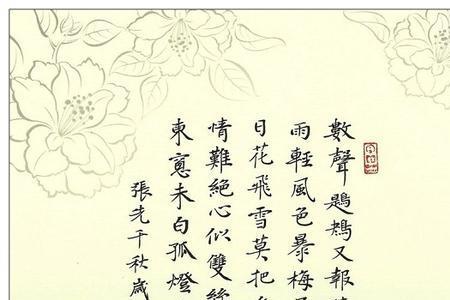 數聲鶗鴃又報
雨輕風色暴梅
日花飛雪莫把
情難絕心似雙絲
東窗未白孤燈
張先千秋歲